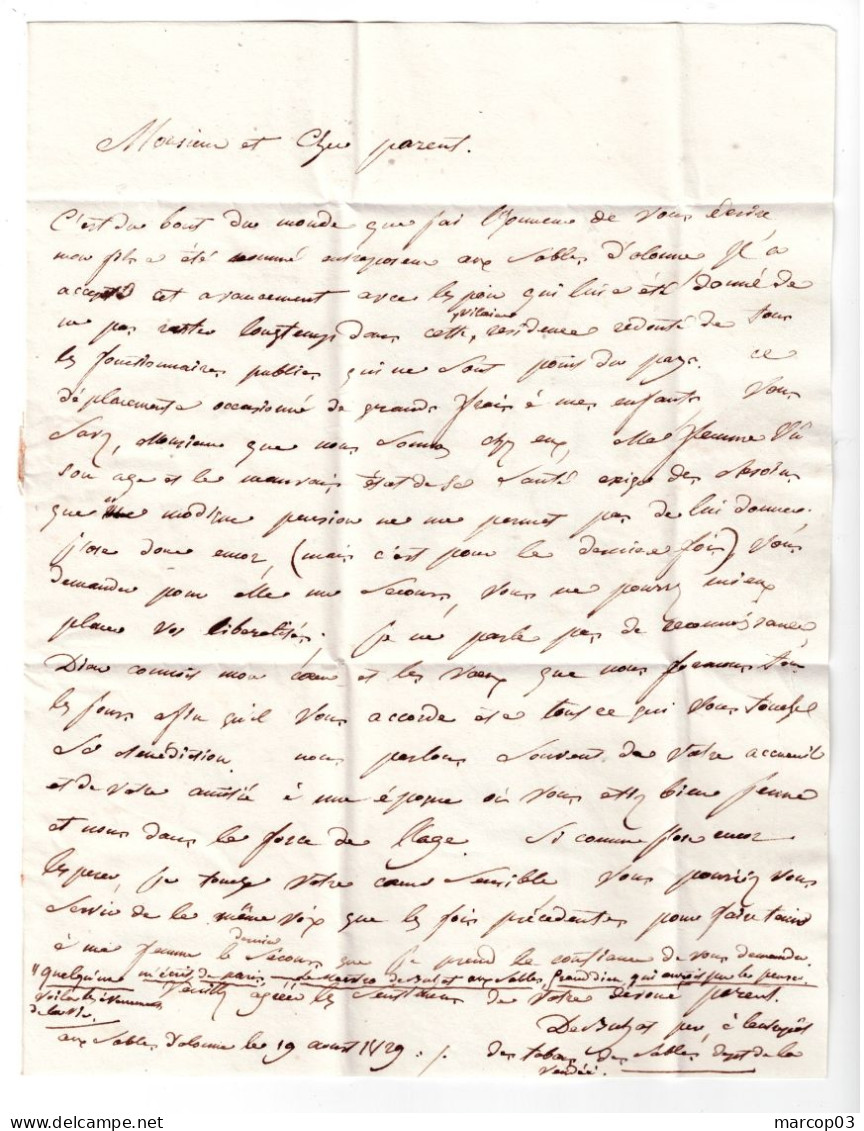 Monsieur et Cher parent.
C'est du bout du monde que j'ai l'honneur de vous écrire,
mon fils a été nommé entreposeur aux Sables d'olonne Il a
accepté cet avancement avec l'espoir qui lui a été donné de
ne pas rester longtemps dans cette vilaine residence redouté de tous
les fonctionnaires publics qui ne sont point du pays. ce
déplacement a occasionné de grands frais à mes enfants Vous
Savez, Monsieur que nous Sommes chez eux, Ma femme Vu
son age et le mauvais état de Sa Santé exige des besoins
que ma modique pension ne me permet pas de lui donner.
j'ose donc encor, (mais c'est pour la derniere fois) Vous
demander pour elle un Secours, Vous ne pourrez mieux
placer vos liberalités; je ne parle pas de reconnoissance,
Dieu connoit mon coeur et les voeux que nous formons tous
les jours afin qu'il Vous accorde et a tous ce qui Vous touche
Sa bénédiction. nous parlons Souvent de votre accueil
et de votre amitié à une époque où Vous étiez bien jeune
et nous dans la force de l'age. Si comme j'ose encor
l'esperer, je touche Votre coeur Sensible Vous pourriez Vous
Servir de la même voix que les fois précédentes pour faire tenir
à ma femme le dernier Secours que je prend la confiance de vous demander.
"quelqu'un m'écrit de paris, de Butzat aux Sables, Grand dieu, qui auroit pu le penser
voila les évenements de la vie.
Veuillez agréer les Sentiments de votre devoué parent.
De Butzat per, à l'entrepôt
aux Sables d'olonne le 19 aoust 1829 ./. des tabacs des Sables dept de la
Vendée.
marcop03